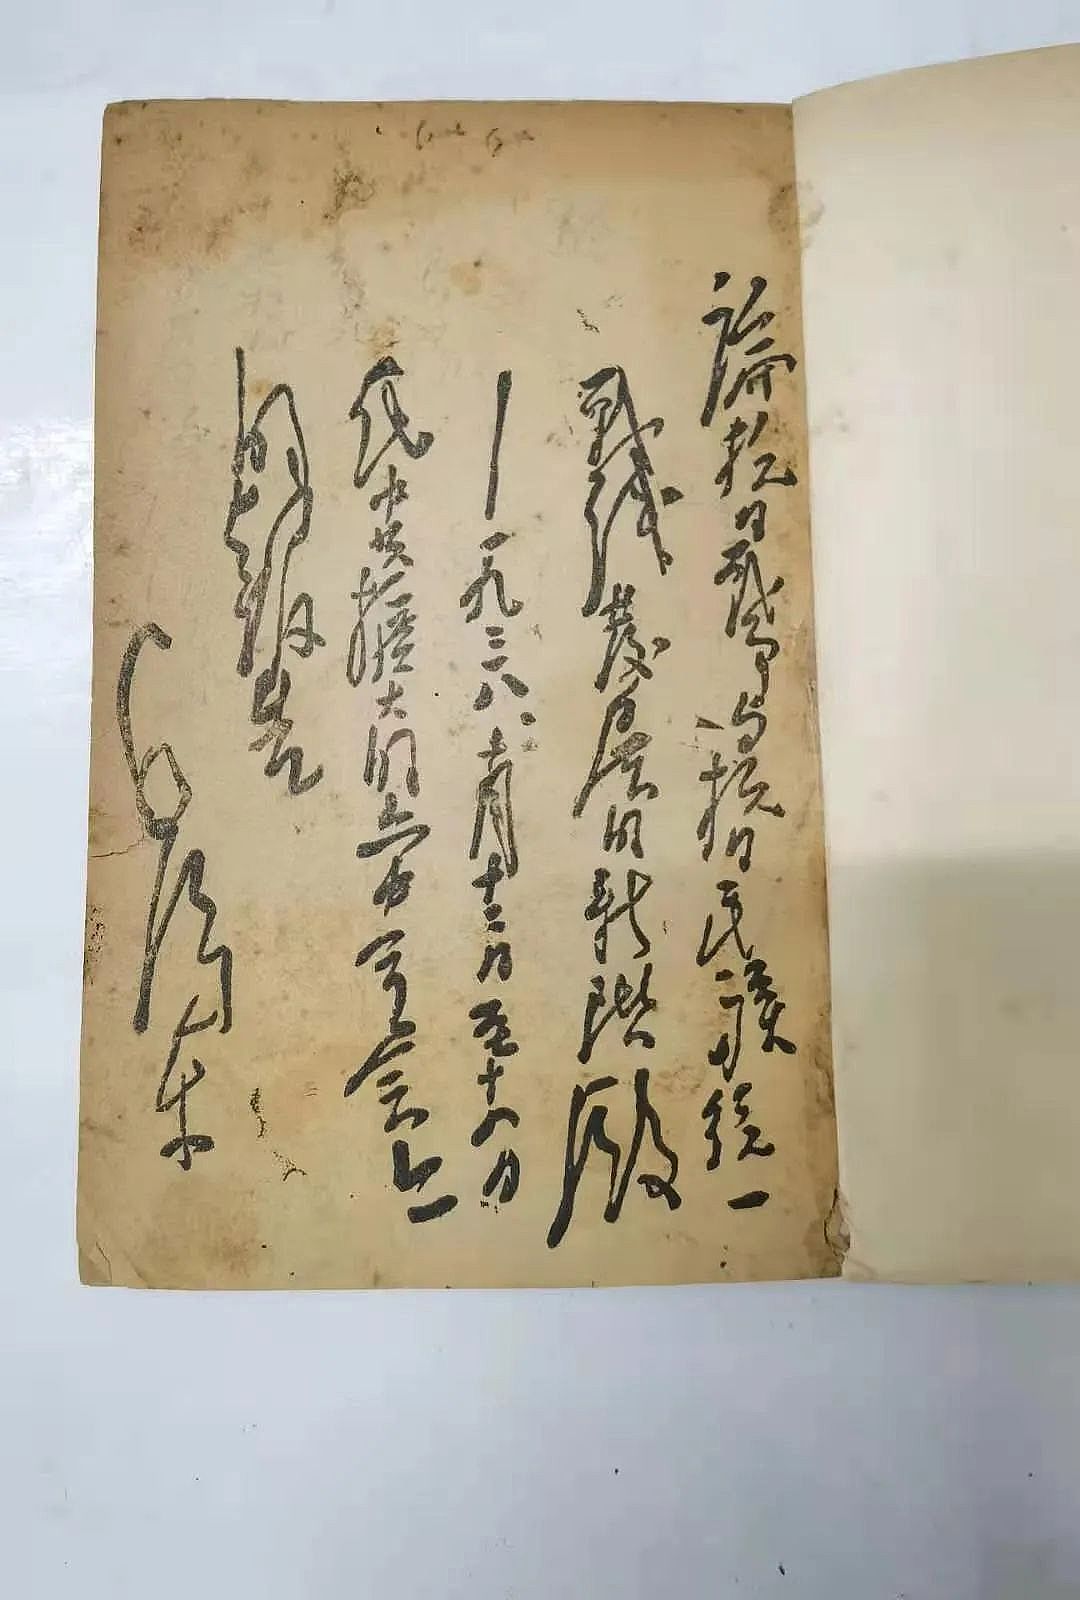 論抗日戰爭与抗日民族統一
戰綫發展的新階段
—一九三八、十月十二日至十四日
在中共擴大的六中全会上
的報告
毛澤東